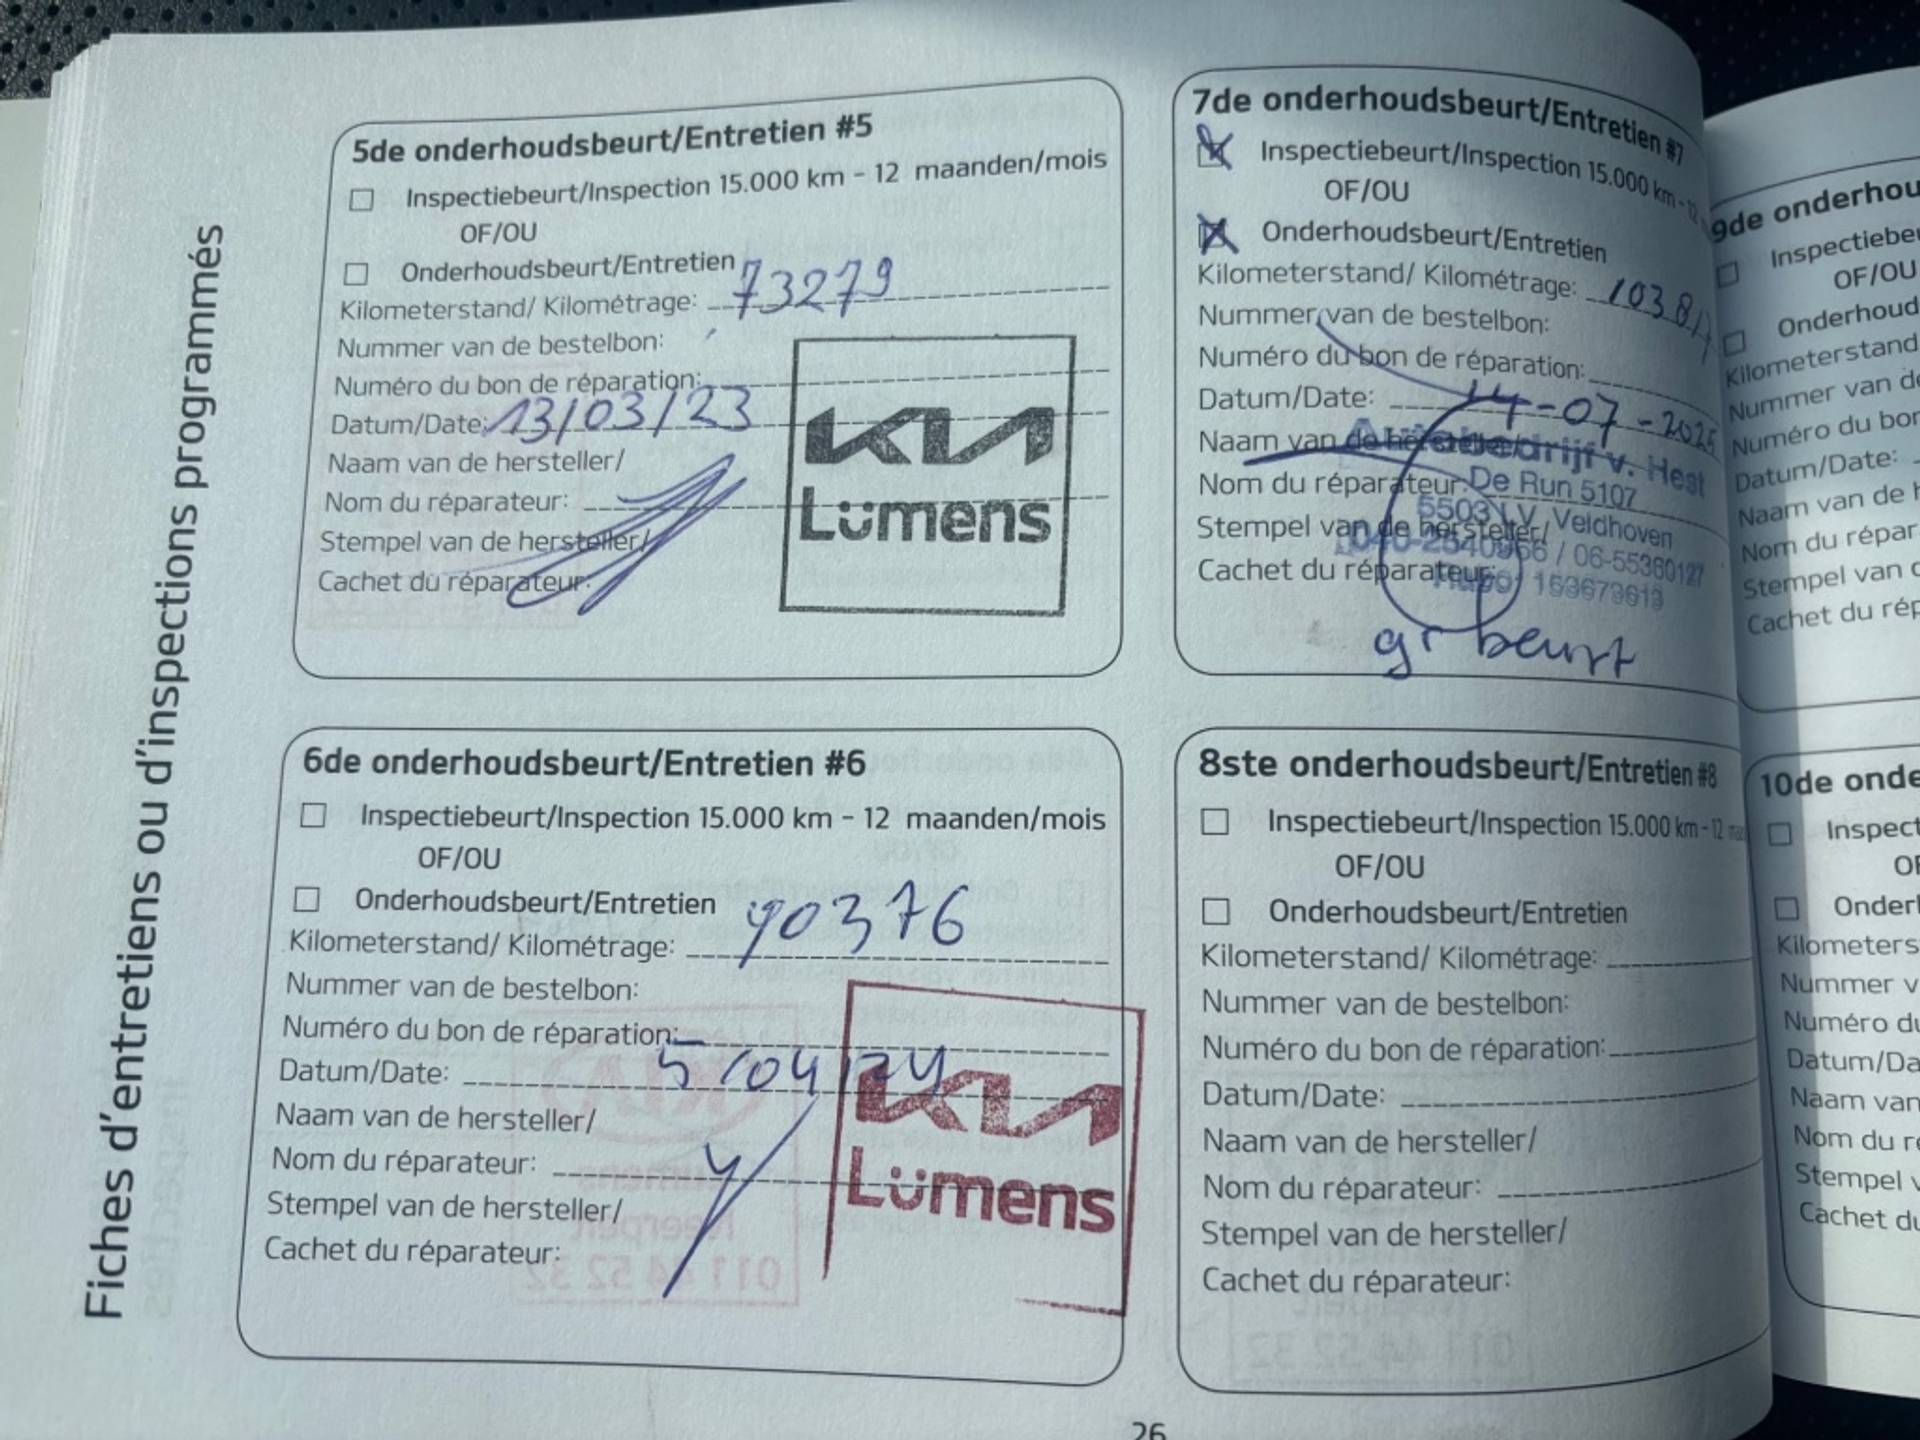 Fiches d'entretiens ou d'inspections programmés
5de onderhoudsbeurt/Entretien #5
Inspectiebeurt/Inspection 15.000 km - 12 maanden/mois
OF/OU
Onderhoudsbeurt/Entretien
Kilometerstand/ Kilométrage: 73279
Nummer van de bestelbon:
Numéro du bon de réparation:
Datum/Date: 13/03/23
Naam van de hersteller/
Nom du réparateur:
Stempel van de hersteller/
Cachet du réparateur:
KIA
Lümens
6de onderhoudsbeurt/Entretien #6
Inspectiebeurt/Inspection 15.000 km - 12 maanden/mois
OF/OU
Onderhoudsbeurt/Entretien
Kilometerstand/ Kilométrage: 90376
Nummer van de bestelbon:
Numéro du bon de réparation:
Datum/Date: 5/04/24
Naam van de hersteller/
Nom du réparateur:
Stempel van de hersteller/
Cachet du réparateur:
KIA
Lümens
7de onderhoudsbeurt/Entretien #7
Inspectiebeurt/Inspection 15.000 km - 12
OF/OU
Onderhoudsbeurt/Entretien
Kilometerstand/ Kilométrage:
Nummer van de bestelbon:
Numéro du bon de réparation:
Datum/Date: 14-07-2025
Naam van de hersteller/
Nom du réparateur:
Stempel van de hersteller/
Cachet du réparateur:
Autobedrijf v. Hest
De Run 5107
5503 LV Veldhoven
040-2540966 / 06-55360127
163673613
gr beurt
8ste onderhoudsbeurt/Entretien #8
Inspectiebeurt/Inspection 15.000 km - 12
OF/OU
Onderhoudsbeurt/Entretien
Kilometerstand/ Kilométrage:
Nummer van de bestelbon:
Numéro du bon de réparation:
Datum/Date:
Naam van de hersteller/
Nom du réparateur:
Stempel van de hersteller/
Cachet du réparateur:
9de onderhou
Inspectiebeu
OF/OU
Onderhoud
Kilometerstand
Nummer van de
Numéro du bon
Datum/Date:
Naam van de h
Nom du répar
Stempel van d
Cachet du rép
10de onde
Inspect
OF
Onderh
Kilometers
Nummer v
Numéro du
Datum/Da
Naam van
Nom du ré
Stempel v
Cachet du
26